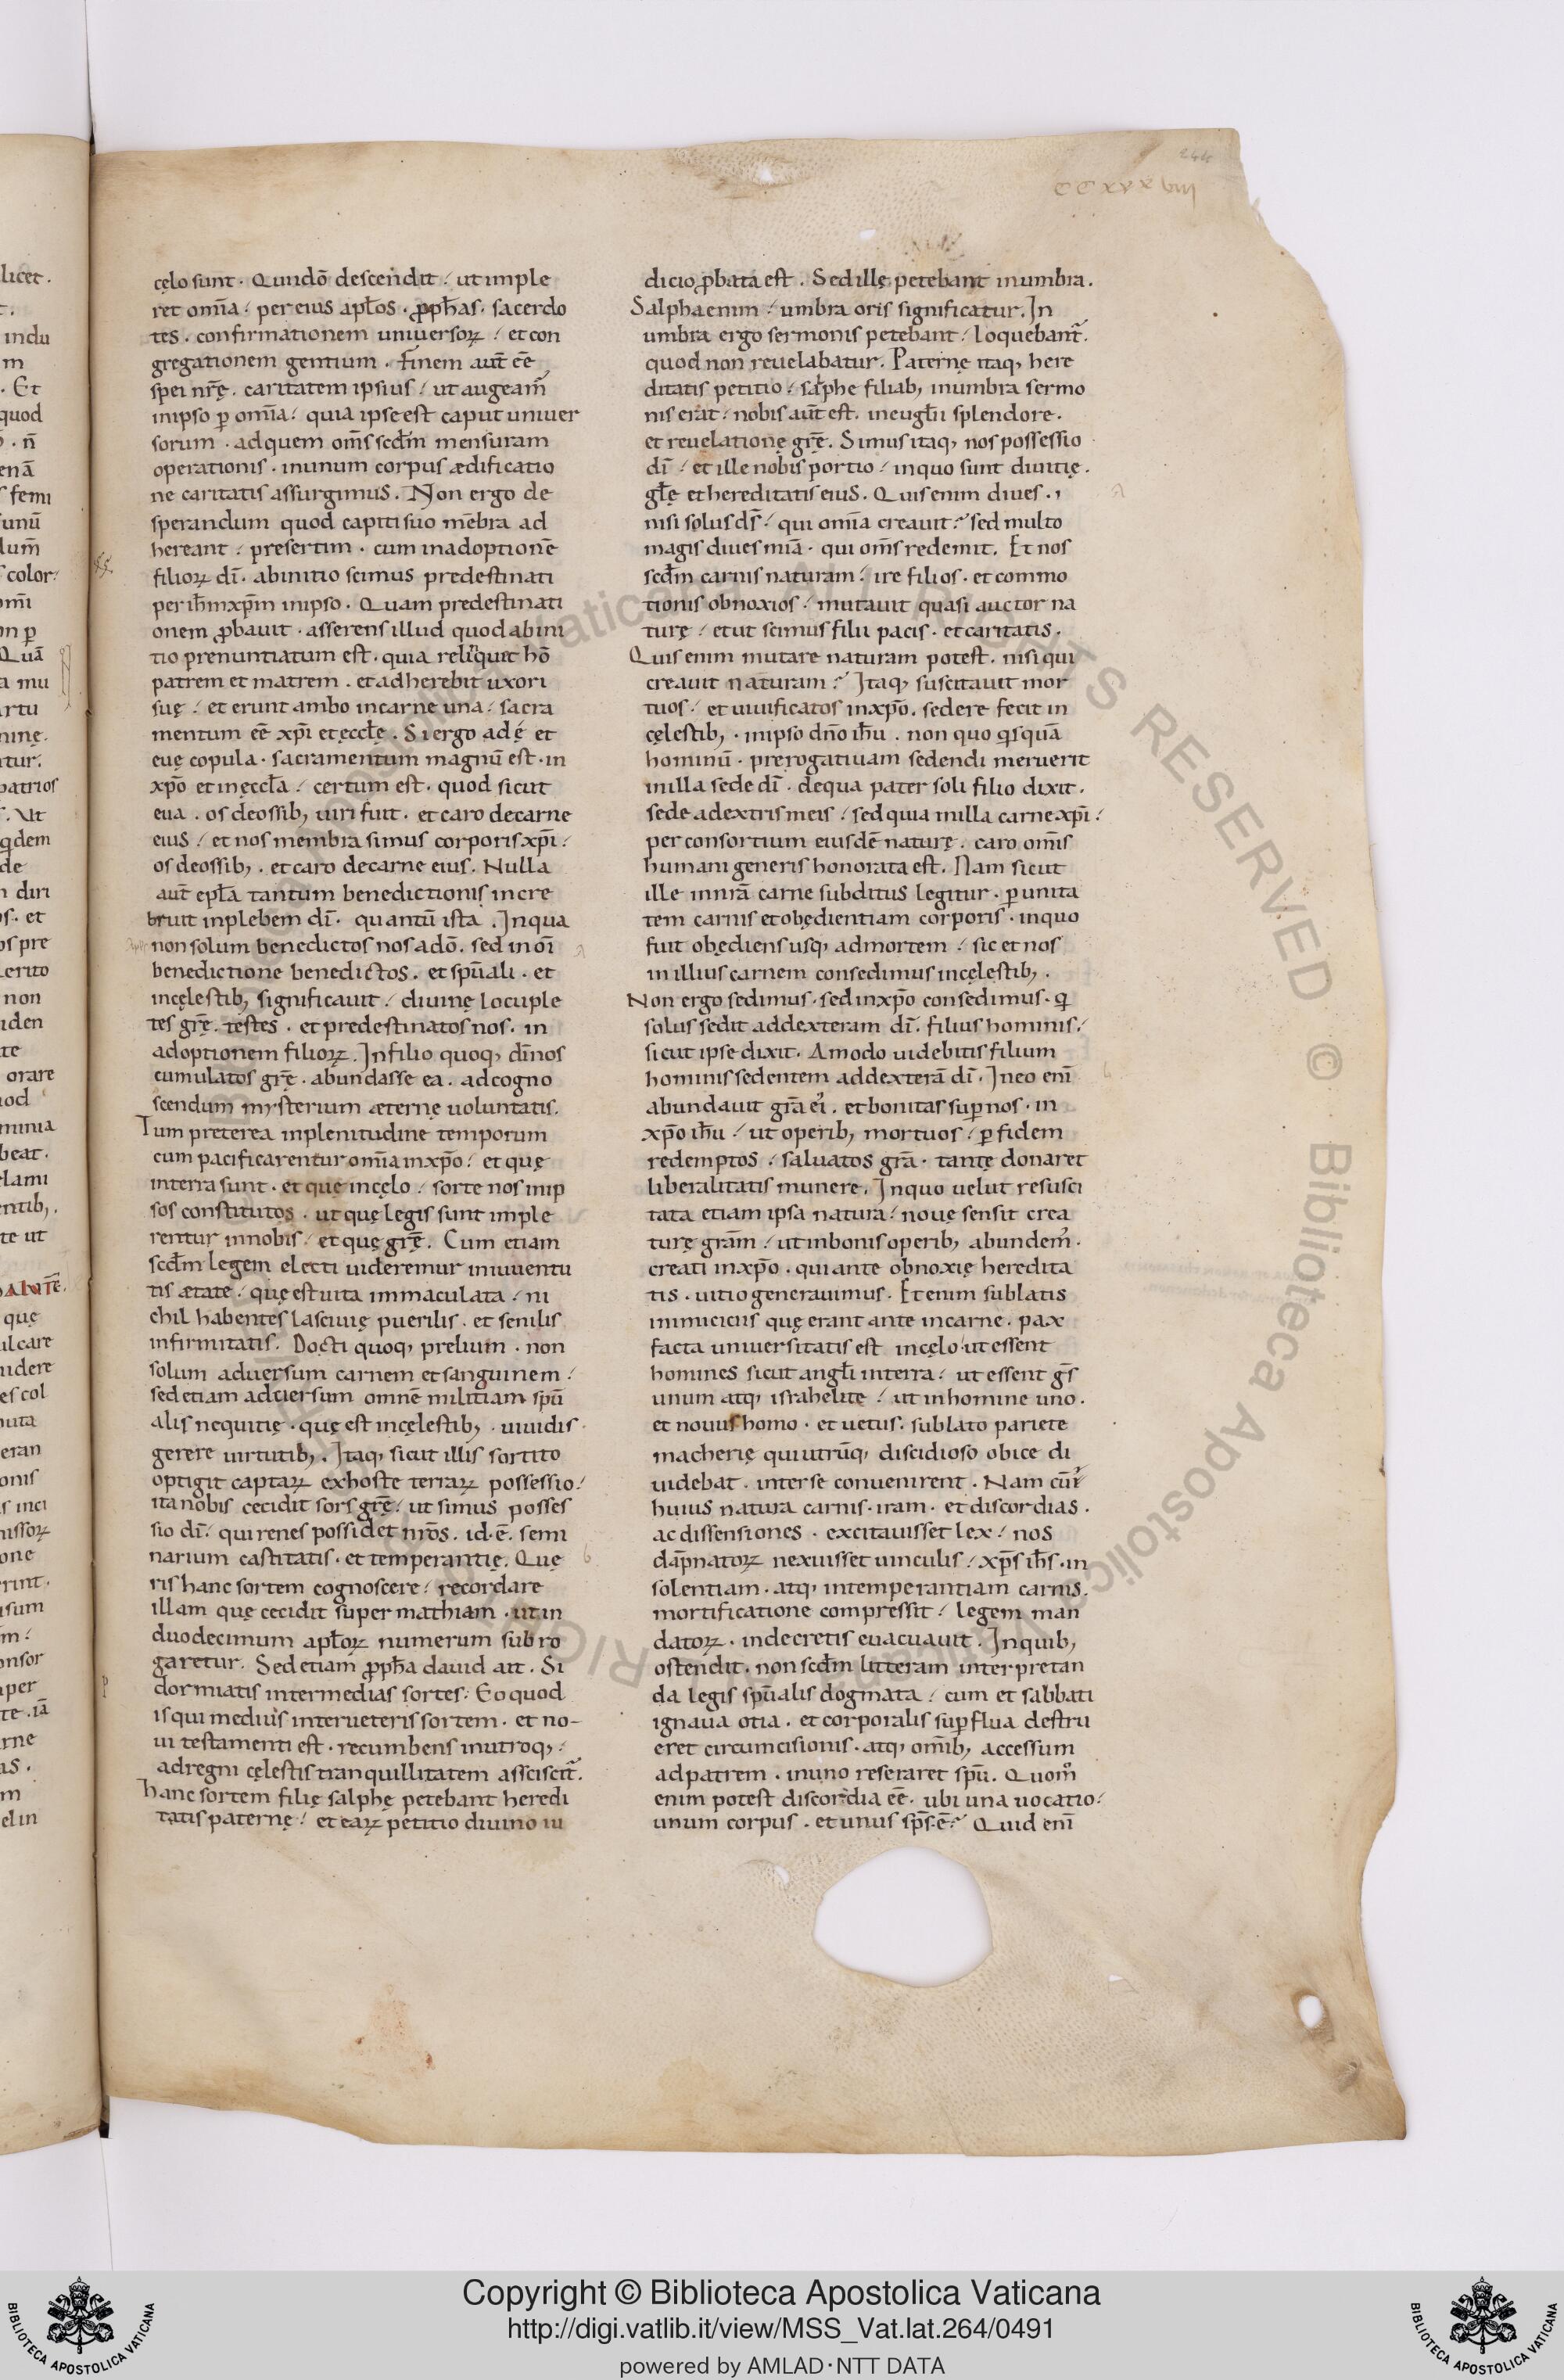 cęlo sunt. Quindō descendit / ut imple
ret om̄ia / per eius apłos. ꝓph̄as. sacerdo
tes. confirmationem uniuersoꝝ / et con
gregationem gentium. Finem aūt eē
spei nr̄ę. caritatem ipsius / ut augeam̄
in ipso ꝑ om̄ia / quia ipse est caput uniuer
sorum. ad quem om̄s scd̄m mensuram
operationis. in unum corpus ædificatio
ne caritatis assurgimus. Non ergo de
sperandum quod capiti suo mēbra ad
hereant / presertim. cum in adoptionē
filioꝝ dī. ab initio scimus predestinati
per ih̄m xp̄m in ipso. Quam predestinati
onem ꝓbauit. asserens illud quod ab ini
tio prenuntiatum est. quia relinquet hō
patrem et matrem. et adherebit uxori
suę / et erunt ambo in carne una / sacra
mentum eē xp̄i et ęccłę. Si ergo adę et
euę copula. sacramentum magnū est. in
xp̄o et in ęccła / certum est. quod sicut
eua. os de ossib; uiri fuit. et caro de carne
eius / et nos membra simus corporis xp̄i /
os de ossib;. et caro de carne eius. Nulla
aūt epła tantum benedictionis incre
bruit in plebem dī. quantū ista. In qua
non solum benedictos nos a dō. sed in oī
benedictione benedictos. et spūali. et
in cęlestib; significauit / diuinę locuple
tes gr̄ę. testes. et predestinatos nos. in
adoptionem filioꝝ. In filio quoq; dī nos
cumulatos gr̄ę. abundasse ea. ad cogno
scendum mysterium æternę uoluntatis.
Tum preterea in plenitudine temporum
cum pacificarentur om̄ia in xp̄o / et quę
in terra sunt. et quę in cęlo / sorte nos in ip
sos constitutos. ut quę legis sunt imple
rentur in nobis / et quę gr̄ę. Cum etiam
scd̄m legem electi uideremur in iuuentu
tis ætate / quę est uita immaculata / ni
chil habentes lasciuię puerilis. et senilis
infirmitatis. Docti quoq; prelium. non
solum aduersum carnem et sanguinem /
sed etiam aduersum omnē militiam spū
alis nequitię. quę est in cęlestib;. uiuidis
gerere uirtutib;. Itaq; sicut illis sortito
optigit captaꝝ ex hoste terraꝝ possessio /
ita nobis cecidit sors gr̄ę / ut simus posses
sio dī / qui renes possidet nr̄os. id. ē. semi
narium castitatis. et temperantię. Quę
ris hanc sortem cognoscere / recordare
illam quę cecidit super mathiam. ut in
duodecimum apłoꝝ numerum subro
garetur. Sed etiam ꝓph̄a dauid ait. Si
dormiatis inter medias sortes / Eo quod
is qui medius inter ueteris sortem. et no-
ui testamenti est. recumbens in utroq; /
ad regni cęlestis tranquillitatem assciscit̄.
hanc sortem filię salphę petebant heredi
tatis paternę / et eaꝝ petitio diuino iu
dicio ꝓbata est. Sed illę petebant in umbra.
Salpha enim / umbra oris significatur. In
umbra ergo sermonis petebant / loquebant̄.
quod non reuelabatur. Paternę itaq; here
ditatis petitio / salphe filiab; in umbra sermo
nis erat / nobis aūt est. in eugłii splendore.
et reuelationę gr̄ę. Simus itaq; nos possessio
dī / et ille nobis portio / in quo sunt diuitię.
głę et hereditatis eius. Quis enim diues.
nisi solus ds̄ / qui om̄ia creauit? sed multo
magis diues mīa. qui om̄s redemit. Et nos
scd̄m carnis naturam / irę filios. et commo
tionis obnoxios / mutauit quasi auctor na
turę / et ut scimus filii pacis. et caritatis.
Quis enim mutare naturam potest. nisi qui
creauit naturam? Itaq; suscitauit mor
tuos / et uiuificatos in xp̄o. sedere fecit in
cęlestib;. in ipso dn̄o ih̄u. non quo qisquā
hominū. prerogatiuam sedendi meruerit
in illa sede dī. de qua pater soli filio dixit.
sede a dextris meis / sed quia in illa carne xp̄i /
per consortium eiusdē naturę. caro om̄is
humani generis honorata est. Nam sicut
ille in nr̄a carne subditus legitur. ꝑ unita
tem carnis et obędientiam corporis. in quo
fuit obędiens usq; ad mortem / sic et nos
in illius carnem consedimus in cęlestib;.
Non ergo sedimus. sed in xp̄o consedimus. qi
solus sedit ad dexteram dī. filius hominis /
sicut ipse dixit. Amodo uidebitis filium
hominis sedentem ad dexterā dī. In eo enī
abundauit gr̄a ei'. et bonitas suꝑ nos. in
xp̄o ih̄u / ut operib; mortuos / ꝑ fidem
redemptos / saluatos gr̄a. tantę donaret
liberalitatis munere. In quo uelut resusci
tata etiam ipsa natura / nouę sensit crea
turę gr̄am / ut in bonis operib; abundem'.
creati in xp̄o. qui ante obnoxię heredita
tis. uitio generauimus. Et enim sublatis
inimiciciis quę erant ante in carne. pax
facta uniuersitatis est in cęlo / ut essent
homines sicut angłi in terra / ut essent gs̄
unum atq; israhelitę / ut in homine uno.
et nouus homo. et uetus. sublato pariete
macherię qui utrūq; discidioso obice di
uidebat. inter se conuenirent. Nam cū
huius natura carnis. iram. et discordias.
ac dissensiones. excitauisset lex / nos
dāpnatoꝝ nexuisset uinculis / xp̄s ih̄s. in
solentiam. atq; intemperantiam carnis.
mortificatione compressit / legem man
datoꝝ. in decretis euacuauit. In quib;
ostendit. non scd̄m litteram interpretan
da legis spūalis dogmata / cum et sabbati
ignaua otia. et corporalis suꝑflua destru
eret circumcisionis. atq; om̄ib; accessum
ad patrem. in uno reseraret spū. Quom̊
enim potest discordia eē. ubi una uocatio /
unum corpus. et unus sps̄. ē? Quid enī
Copyright © Biblioteca Apostolica Vaticana
http://digi.vatlib.it/view/MSS_Vat.lat.264/0491
powered by AMLAD·NTT DATA